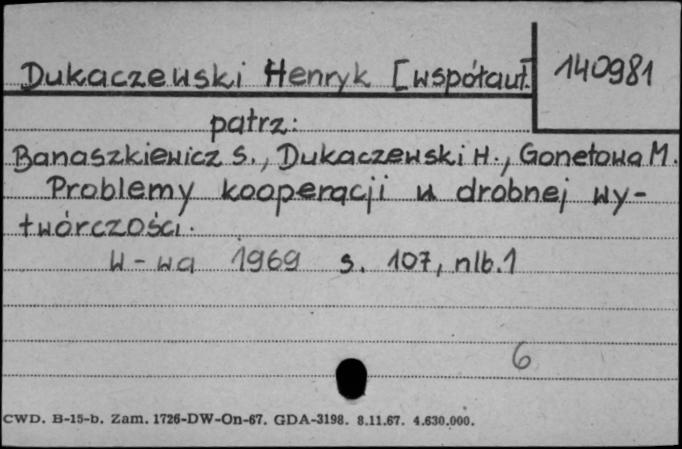 Dukaczewski Henryk [współaut.]
140981
patrz:
Banaszkiewicz S., Dukaczewski H., Gonetowa M.
Problemy kooperacji w drobnej wy-
twórczości.
W-wa 1969 s. 107, nlb.1
6
CWD. B-15-b. Zam. 1726-DW-On-67. GDA-3198. 8.11.67. 4.630.000.